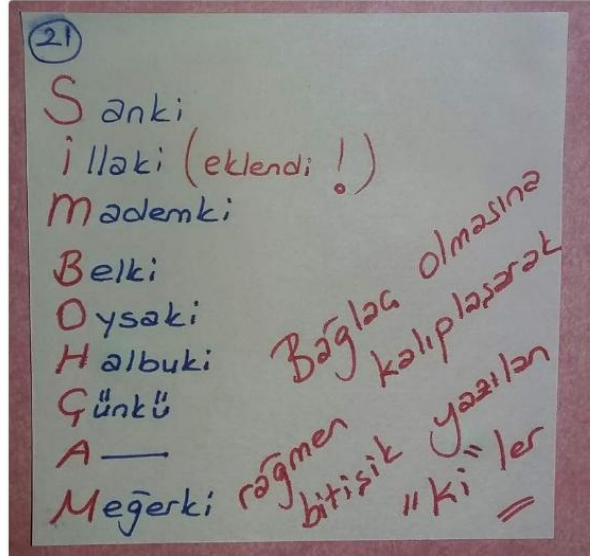 21
Sanki
illaki (eklendi !)
Mademki
Belki
Oysaki
Halbuki
Çünkü
A —
Meğerki
Bağlaç olmasına
rağmen kalıplaşarak
bitişik yazılan
"ki" ler